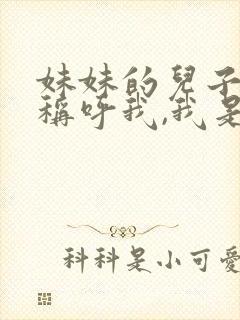 妹妹的兒子
稱呼我,我是
科科是小可愛